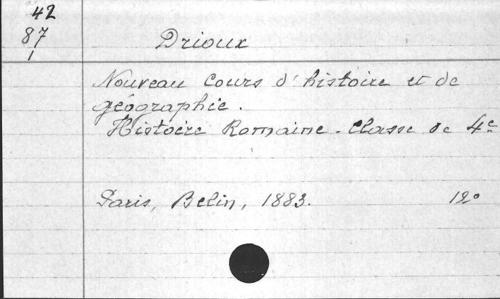 42
87
1
Drioux
Nouveau Cours d'histoire et de
géographie.
Histoire Romaine. Classe de 4e
Paris, Belin, 1883. 12o